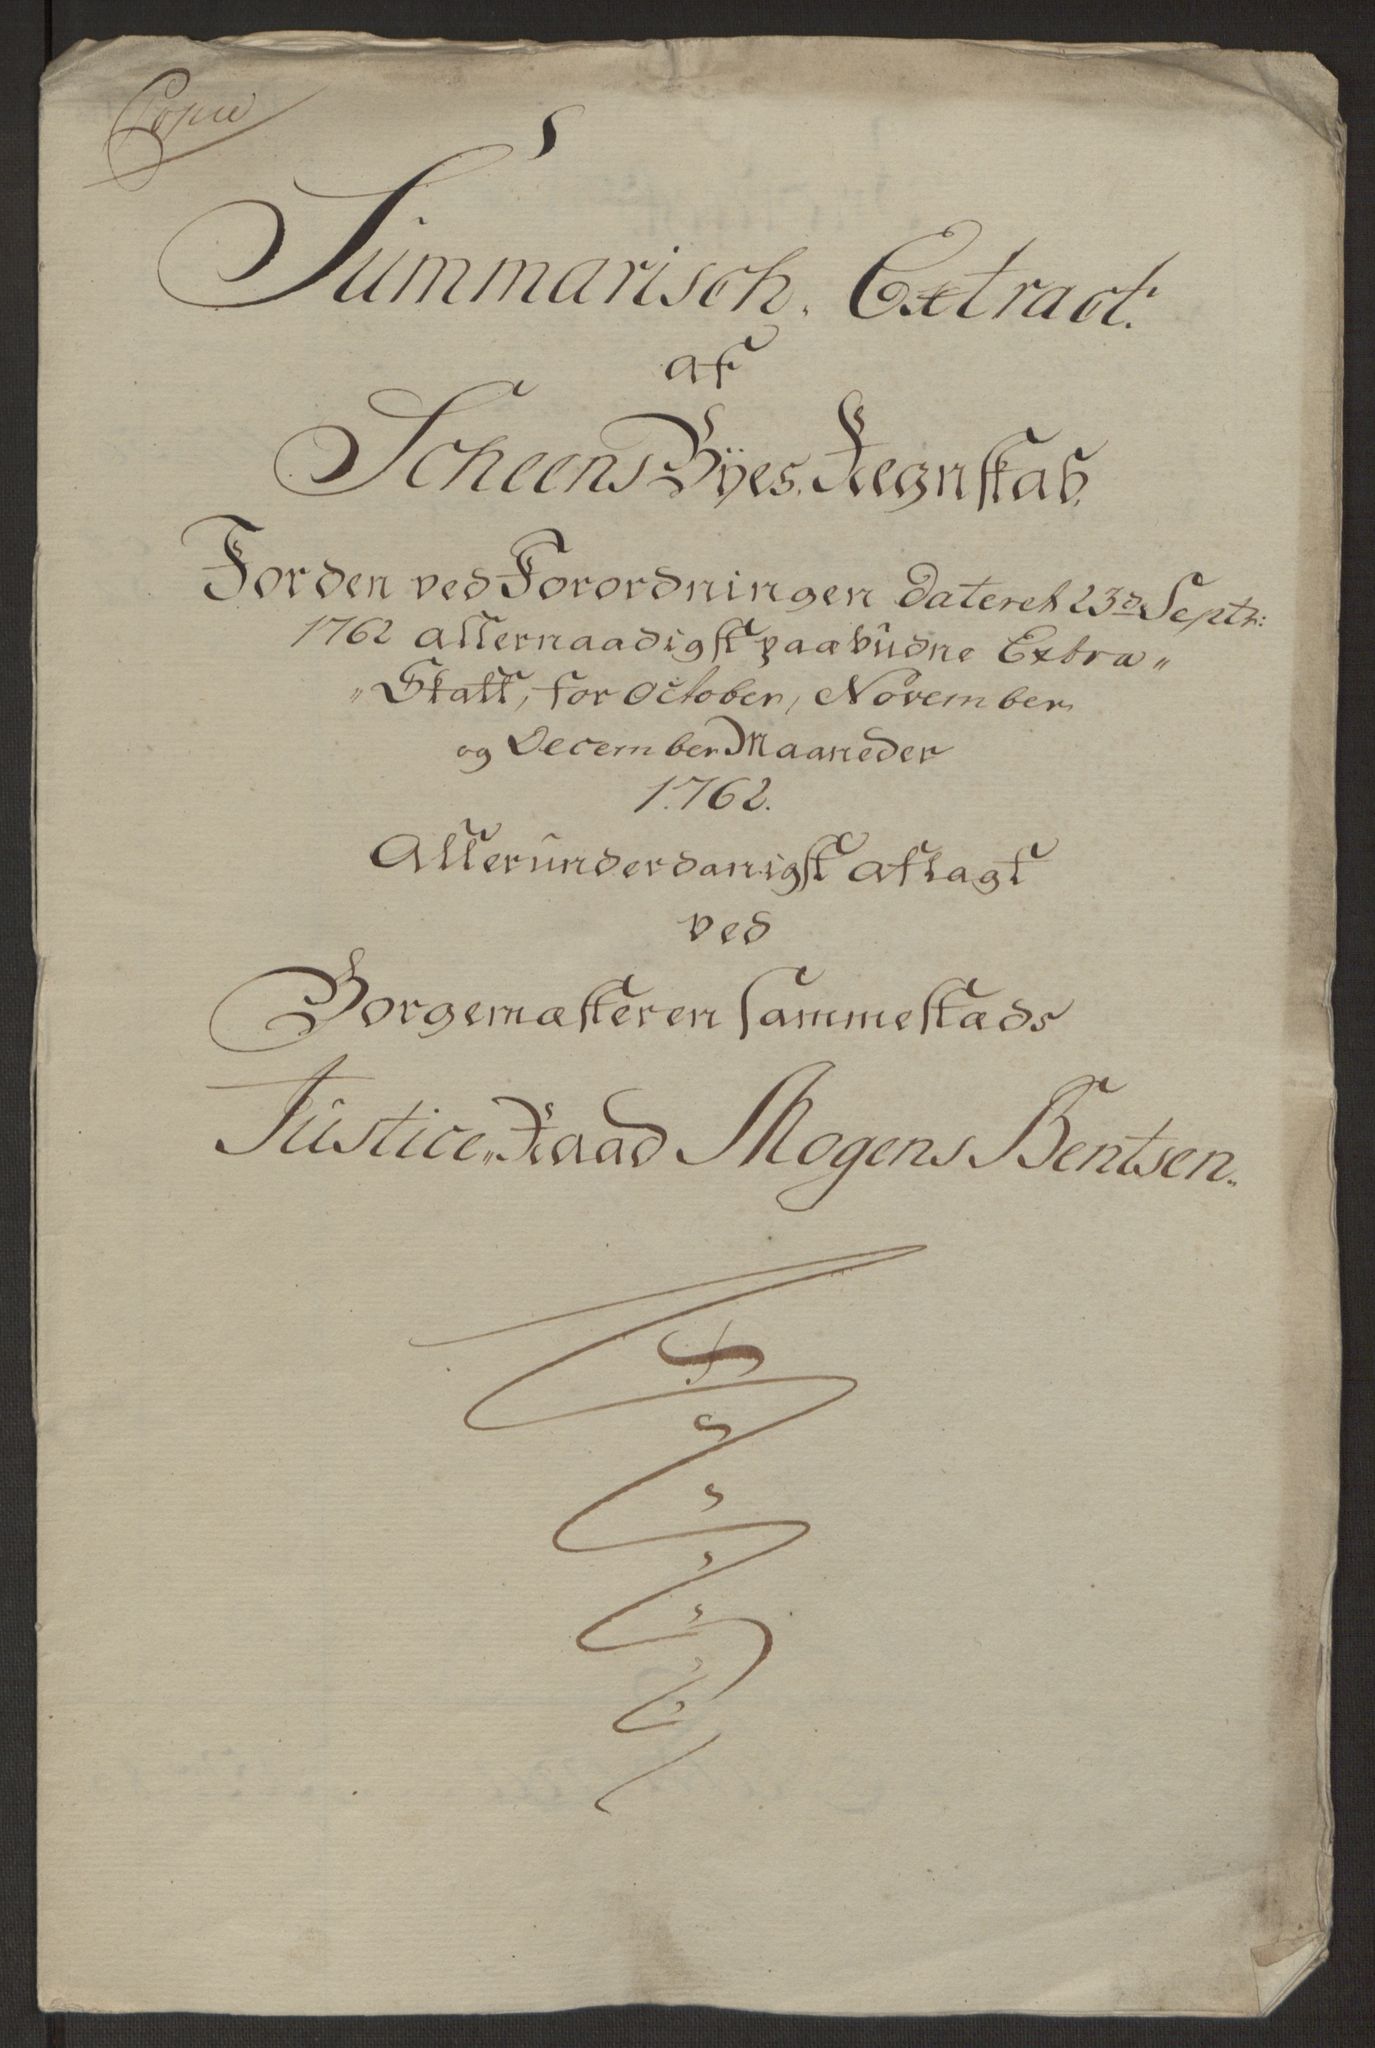 Copie
Summarisch. Extract.
af
Scheens Byes. Regnskab.
For den ved Forordningen dateret 23d Septr:
1762 allernaadigst paabudne Extra„
„Skatt, for October, November
og December Maaneder
1762.
Allerunderdanigst aflagt
ved
Borgemesteren sammestæds
Justice„Raad Mogens Bentsen„